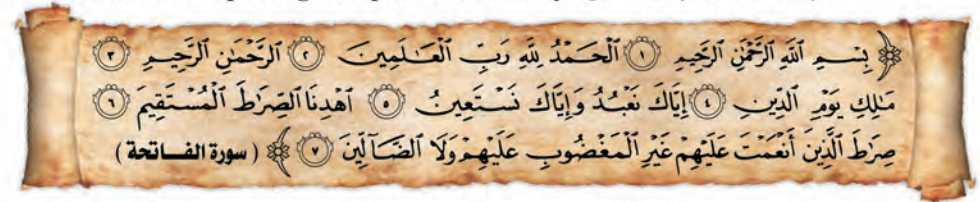 ﴿ بِسْمِ ٱللَّهِ ٱلرَّحْمَٰنِ ٱلرَّحِيمِ ۝١ ٱلْحَمْدُ لِلَّهِ رَبِّ ٱلْعَـٰلَمِينَ ۝٢ ٱلرَّحْمَٰنِ ٱلرَّحِيمِ ۝٣
مَـٰلِكِ يَوْمِ ٱلدِّينِ ۝٤ إِيَّاكَ نَعْبُدُ وَإِيَّاكَ نَسْتَعِينُ ۝٥ ٱهْدِنَا ٱلصِّرَٰطَ ٱلْمُسْتَقِيمَ ۝٦
صِرَٰطَ ٱلَّذِينَ أَنْعَمْتَ عَلَيْهِمْ غَيْرِ ٱلْمَغْضُوبِ عَلَيْهِمْ وَلَا ٱلضَّآلِّينَ ۝٧ ﴾ (سورة الفـــاتحة)